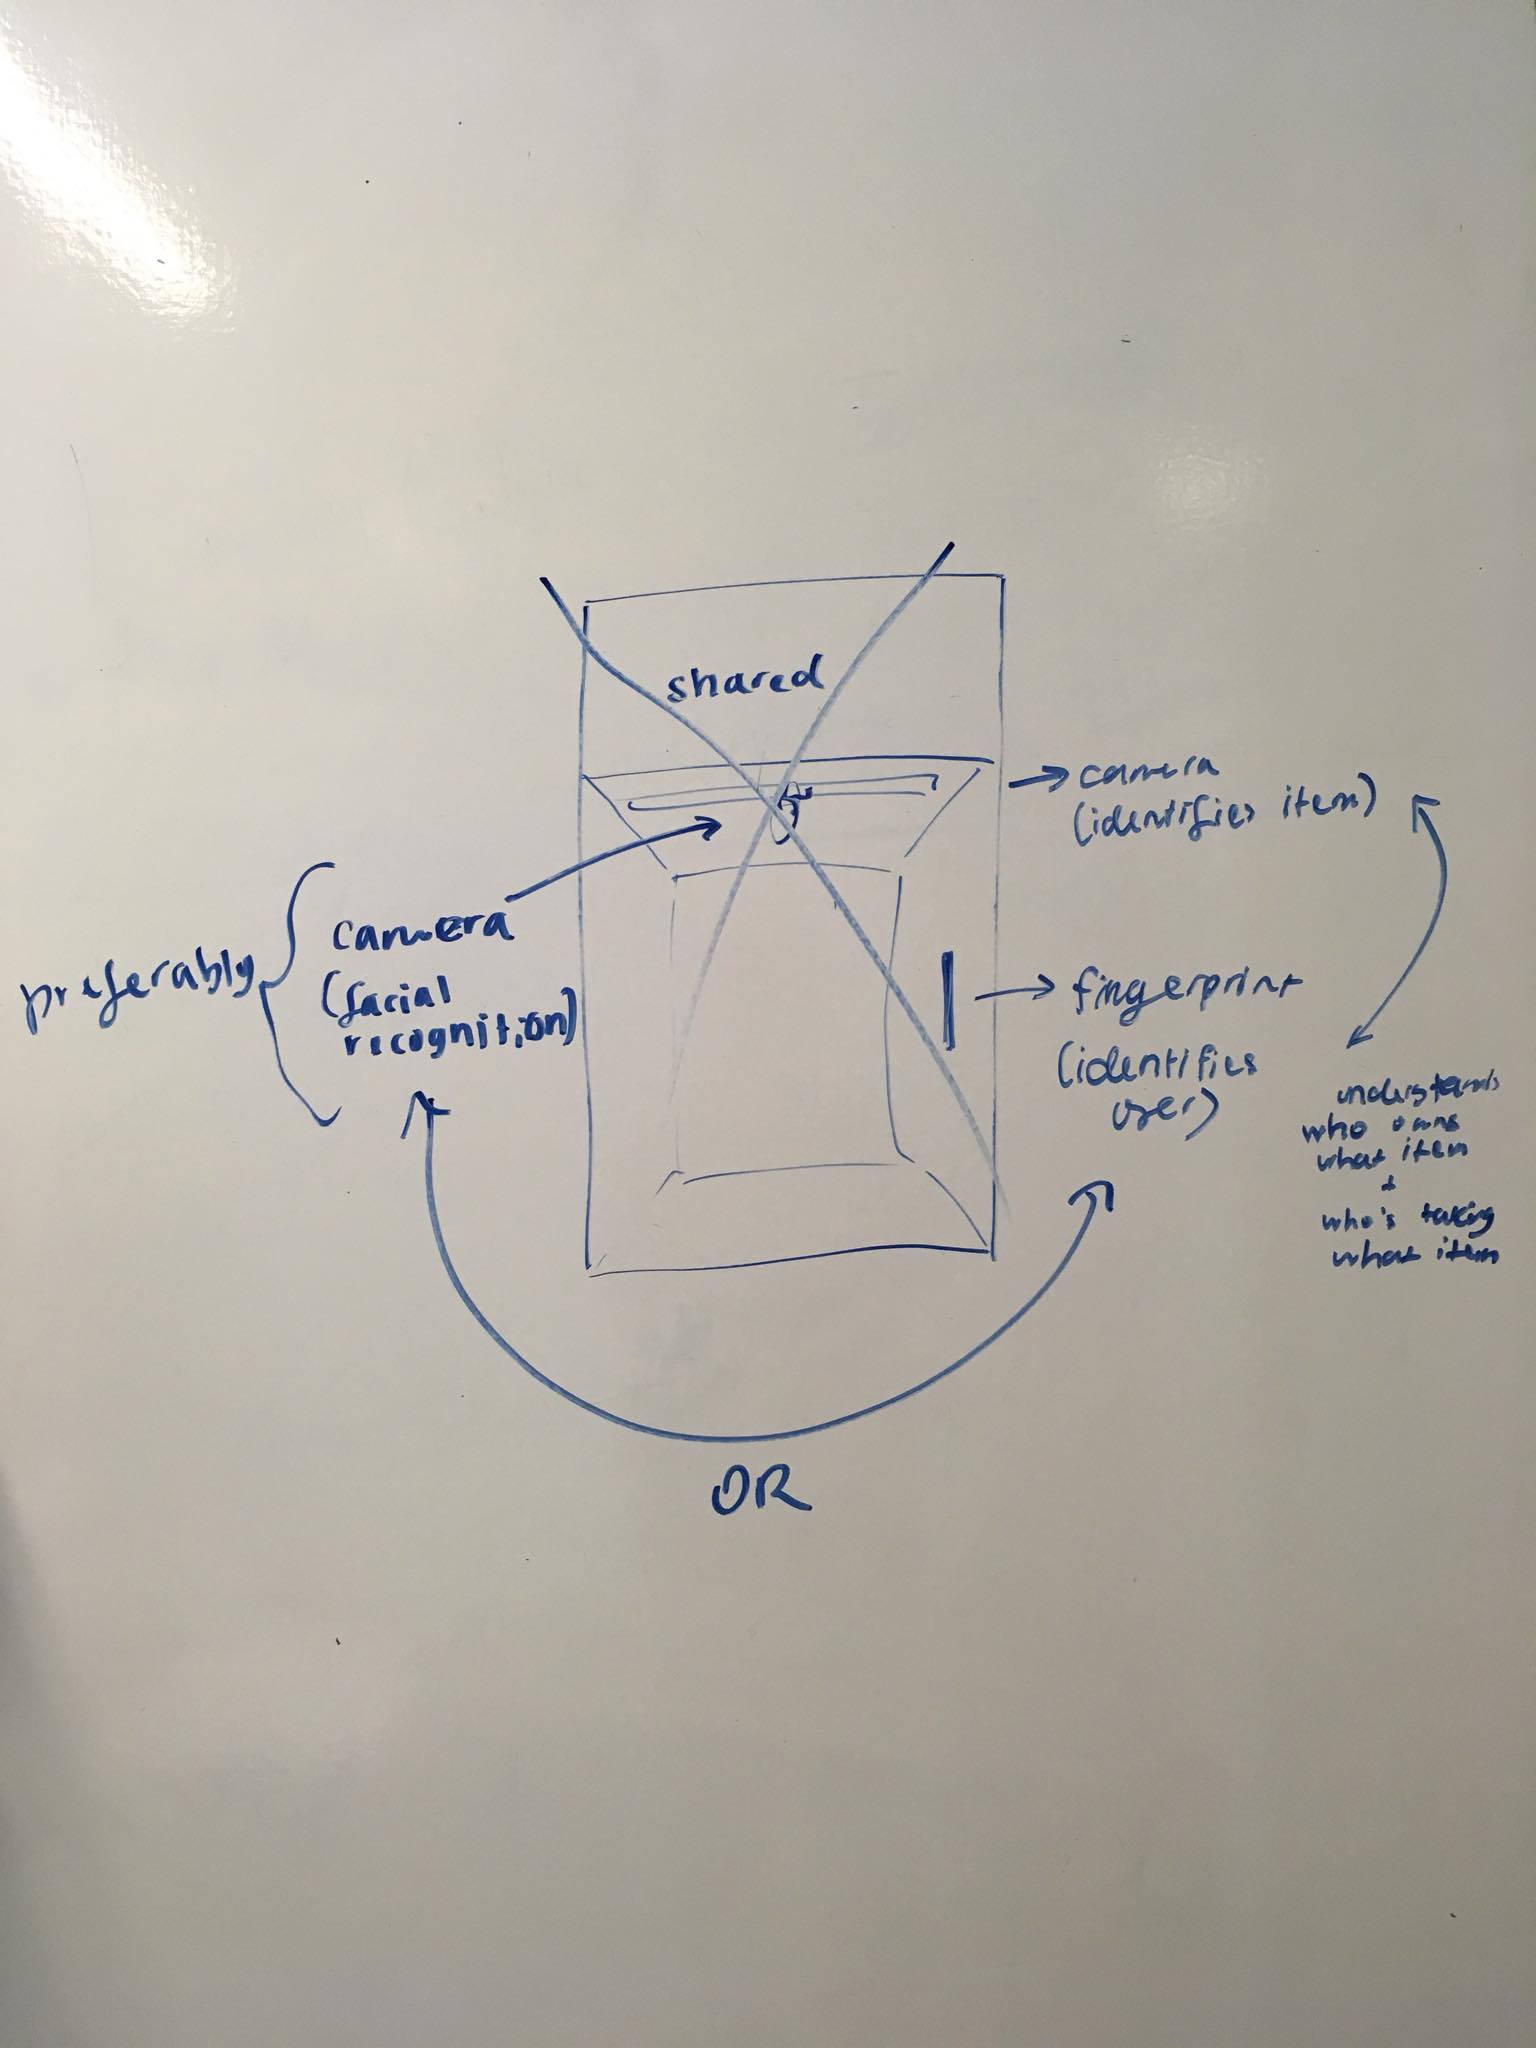 shared
camera
(identifies item)
preferably
camera
(facial
recognition)
fingerprint
(identifies
user)
understands
who owns
what item
+
who's taking
what item
OR